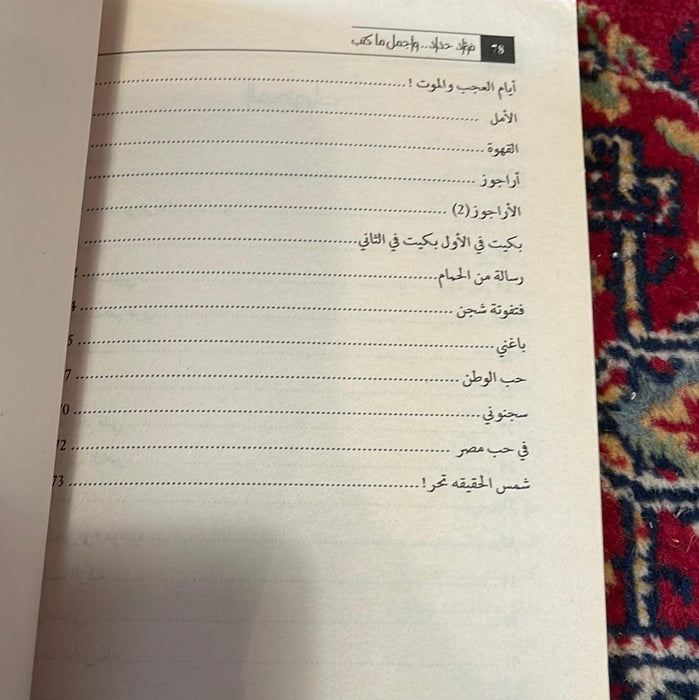 78 فؤاد حداد.. وأجمل ما كتب
أيام العجب والموت !
الأمل
القهوة
أراجوز
الأراجوز (2)
بكيت في الأول بكيت في الثاني
رسالة من الحمام
فتفوتة شجن
باغني
حب الوطن
سجنوني
في حب مصر
شمس الحقيقه تحر !